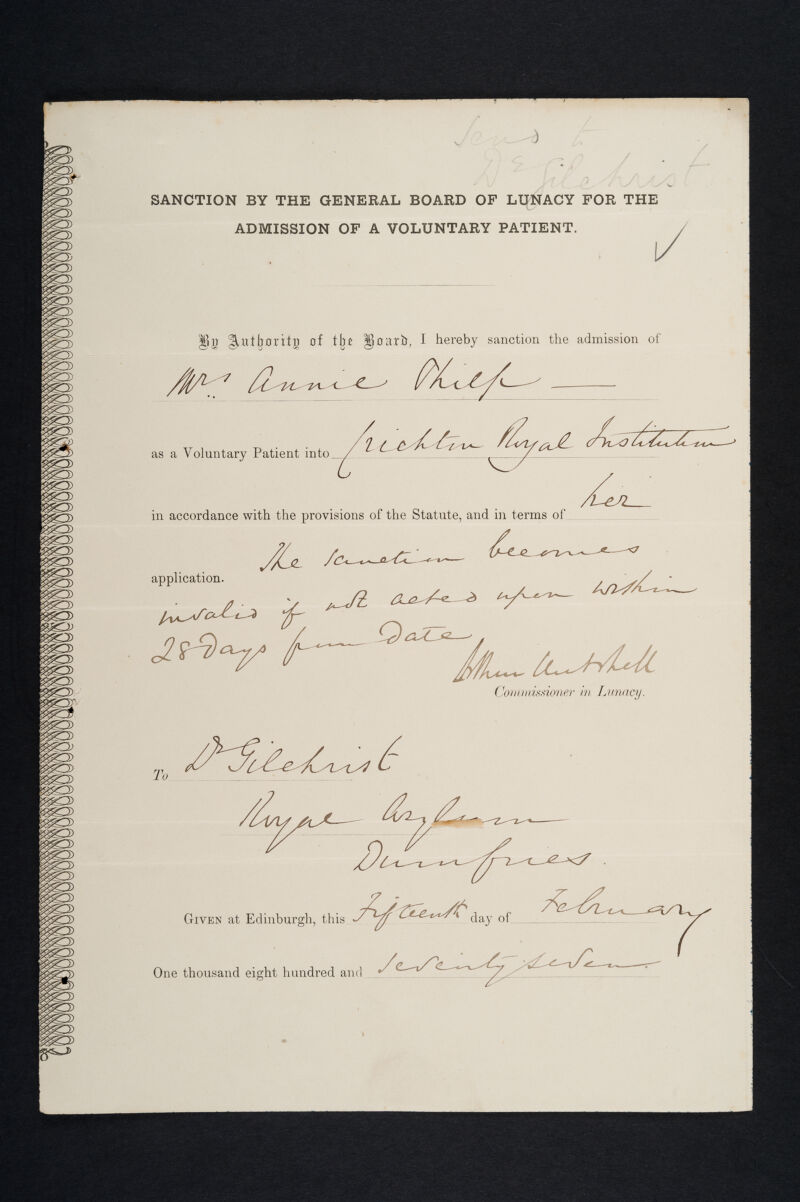 Send to
Dr Gilchrist
SANCTION BY THE GENERAL BOARD OF LUNACY FOR THE
ADMISSION OF A VOLUNTARY PATIENT.
By Authority of the Board, I hereby sanction the admission of
Mrs. Annie Philp
as a Voluntary Patient into Crichton Royal Institution
in accordance with the provisions of the Statute, and in terms of her
application. The sanction becomes
invalid if not acted upon within
28 Days from Date
Arthur Mitchell
Commissioner in Lunacy.
To Dr Gilchrist
Royal Asylum
Dumfries.
GIVEN at Edinburgh, this Fifteenth day of February
One thousand eight hundred and seventy seven.